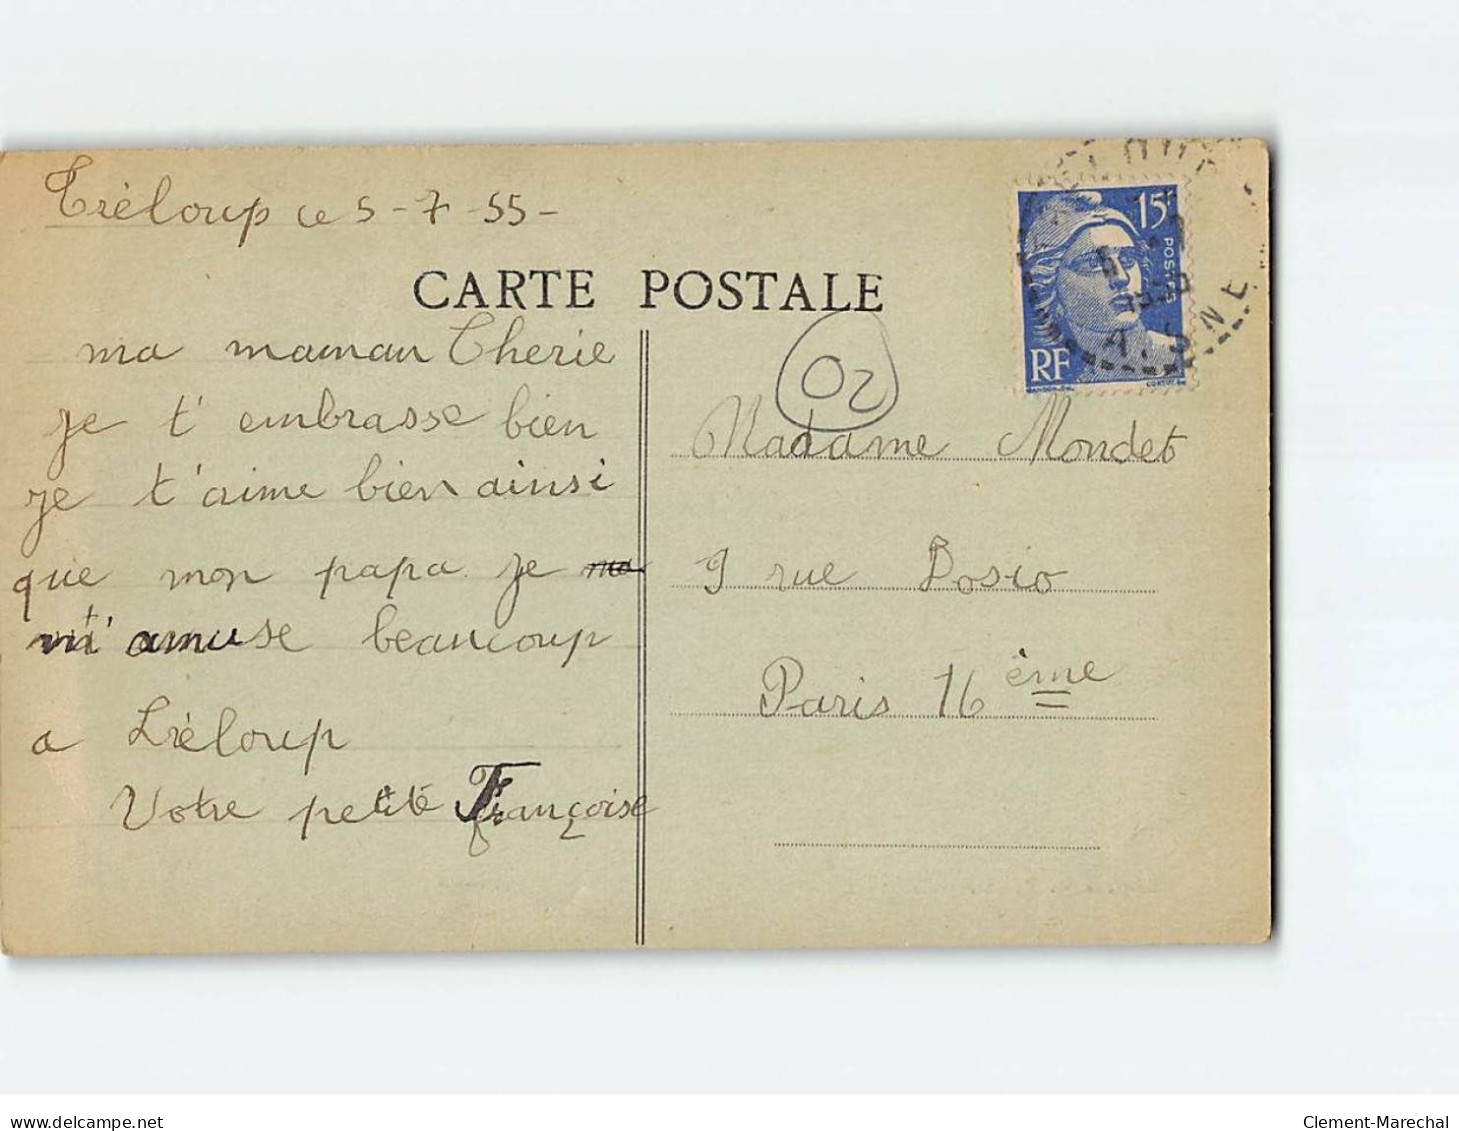 Tréloup ce 5-7-55-
CARTE POSTALE
15F
POSTES
RF
AISNE
02
ma maman Cherie
je t'embrasse bien
je t'aime bien ainsi
que mon papa. je
m'amuse beaucoup
a Tréloup
Votre petite Françoise
Madame Mondet
9 rue Bosio
Paris 16ème
delcampe.net
Clement-Marechal